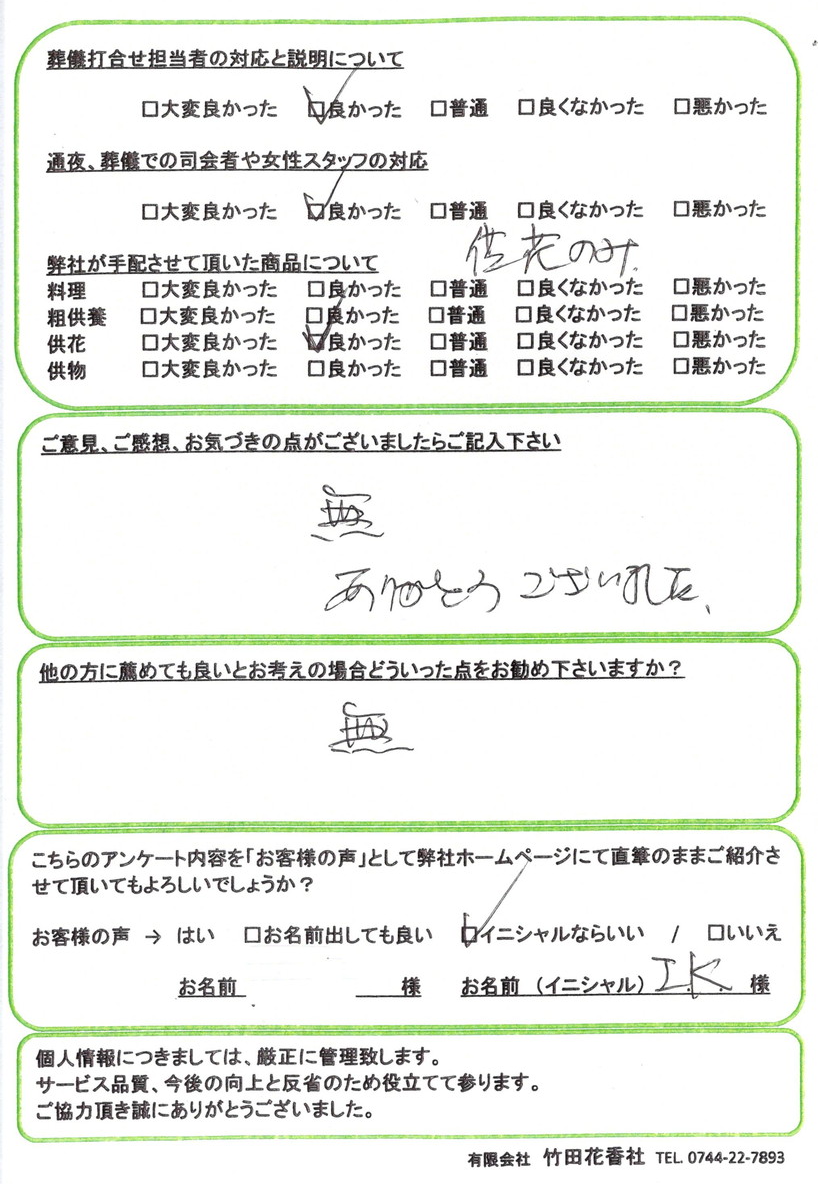 葬儀打合せ担当者の対応と説明について
□大変良かった ☑良かった □普通 □良くなかった □悪かった
通夜、葬儀での司会者や女性スタッフの対応
□大変良かった ☑良かった □普通 □良くなかった □悪かった
供花のみ.
弊社が手配させて頂いた商品について
料理 □大変良かった □良かった □普通 □良くなかった □悪かった
粗供養 □大変良かった □良かった □普通 □良くなかった □悪かった
供花 □大変良かった ☑良かった □普通 □良くなかった □悪かった
供物 □大変良かった □良かった □普通 □良くなかった □悪かった
ご意見、ご感想、お気づきの点がございましたらご記入下さい
無
ありがとうございました、
他の方に薦めても良いとお考えの場合どういった点をお勧め下さいますか?
無
こちらのアンケート内容を「お客様の声」として弊社ホームページにて直筆のままご紹介さ
せて頂いてもよろしいでしょうか?
お客様の声 → はい □お名前出しても良い ☑イニシャルならいい / □いいえ
お名前 様 お名前 (イニシャル) I.K. 様
個人情報につきましては、厳正に管理致します。
サービス品質、今後の向上と反省のため役立てて参ります。
ご協力頂き誠にありがとうございました。
有限会社 竹田花香社 TEL. 0744-22-7893